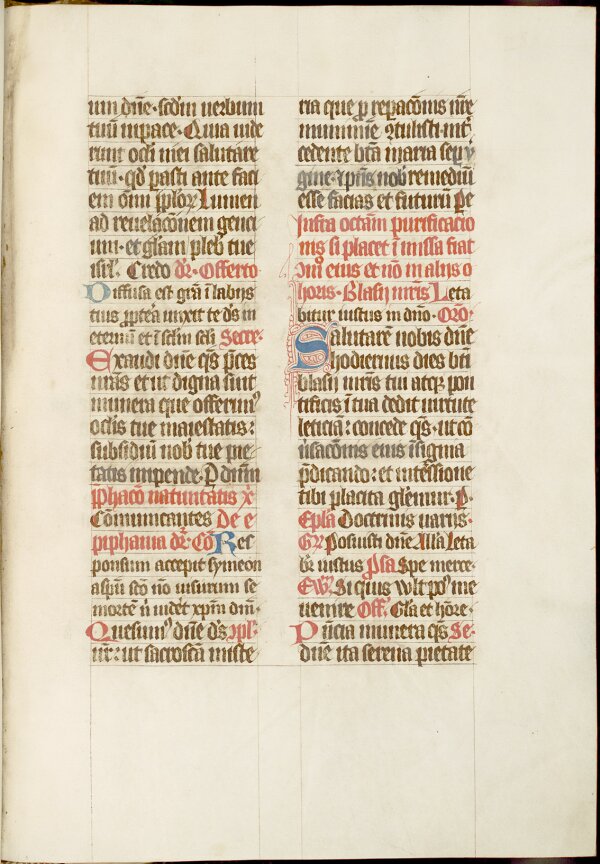 um dn̄e · scd̄m uerbum
tuū in pace · Quia uide
runt ocl̄i mei salutare
tuū · qd̄ parasti ante faci
em om̄i ppl̄oꝝ Lumen
ad reuelac̄onem genci
um · et gl̄am pleb̄ tue
isrl̄ · Credo dr̄ · Offer̄to
Diffusa est grā ī labijs
tuis ꝓptea unxit te ds̄ in
eternū et ī sclm̄ scl̄i Secre ·
Exaudi dn̄e qs̄ p̄ces
nr̄as et ut digna sint
munera que offerim⁹
oclis tue maiestatis :
subsidiū nob̄ tue pie
tatis impende · P dn̄m
Pphac̄o natiuitatis x̄
Cōmunicantes De e
piphania dr̄ · Cō Res
ponsum accepit symeon
a spū sc̄o nō uisurum se
mortē n̄ uidet xp̄m dn̄i ·
Quesum⁹ dn̄e ds̄ Cpl̄ ·
nr̄ : ut sacrosc̄a miste
ria que ꝑ reparac̄onis nr̄e
munimīe ꝯtulisti · int̄
cedente bt̄a maria semꝑ ỽ
gine · et pn̄s nob̄ remediū
esse facias et futurū Pe
Infra octām purificacio
nis si placet ī missa fiat
eius et nō in alijs o
horis · Blasij mr̄is Leta
bitur iustus in dn̄o · OR̄O ·
Salutarē nobis dn̄e
hodiernus dies bt̄i
blasij mr̄is tui atqꝫ pon
tificis ī tua dedit uirtute
leticiā : concede qs̄ · ut cō
eius īsignia
p̄dicando : et int̄cessione
tibi placita gl̄emur · P ·
Epl̄a Doctrinis uarijs ·
Gr̄ Posuisti dn̄e Alla Leta
br̄ iustus P̄sa Spe merce ·
Ew̄ · Si quis wlt po᷒ me
uenire Off̄ · Gl̄a et hōre ·
Pn̄cia munera qs̄ Se ·
dn̄e ita serena pietate